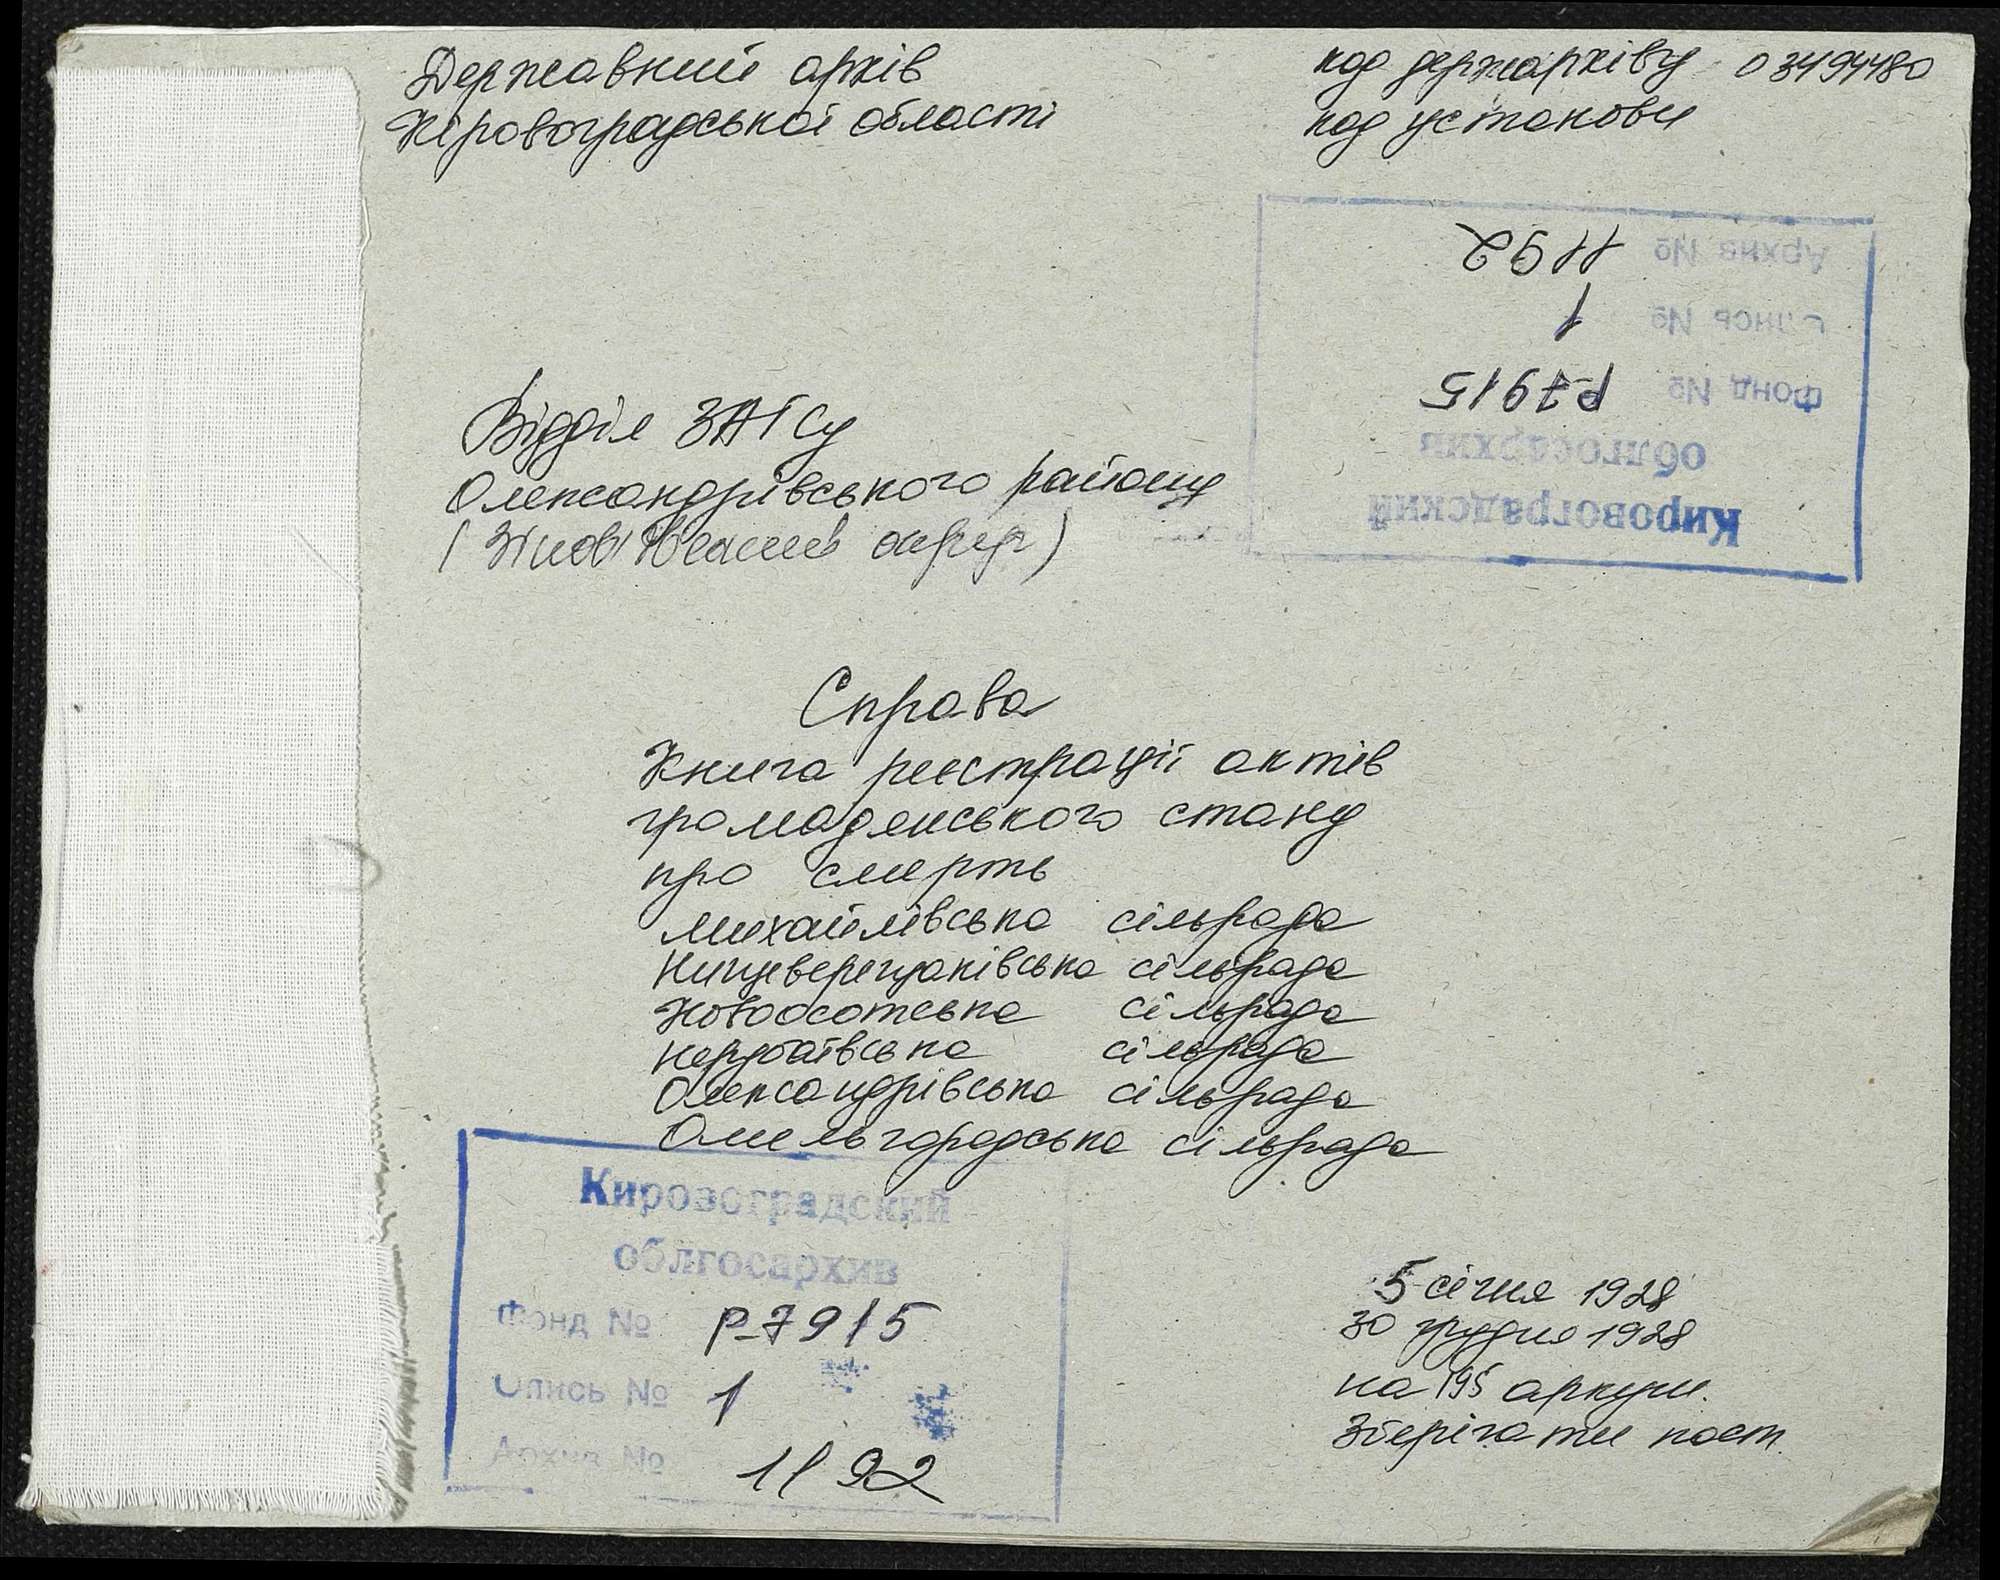 Державний архів
Кіровоградської області
код держархіву 03494480
код установи
Архив № 1192
Опись № 1
Фонд № Р-7915
облгосархив
Кировоградский
Відділ ЗАГСу
Олександрівського району
(Зінов'євський округ)
Справа
Книга реєстрації актів
громадянського стану
про смерть
Михайлівська сільрада
Нищеверещаківська сільрада
Новоосотська сільрада
сільрада
Олександрівська сільрада
Омельгородська сільрада
Кировоградский
облгосархив
Фонд № Р-7915
Опись № 1
Архив № 1192
5 січня 1928
30 грудня 1928
на 195 аркуш.
Зберігати пост.